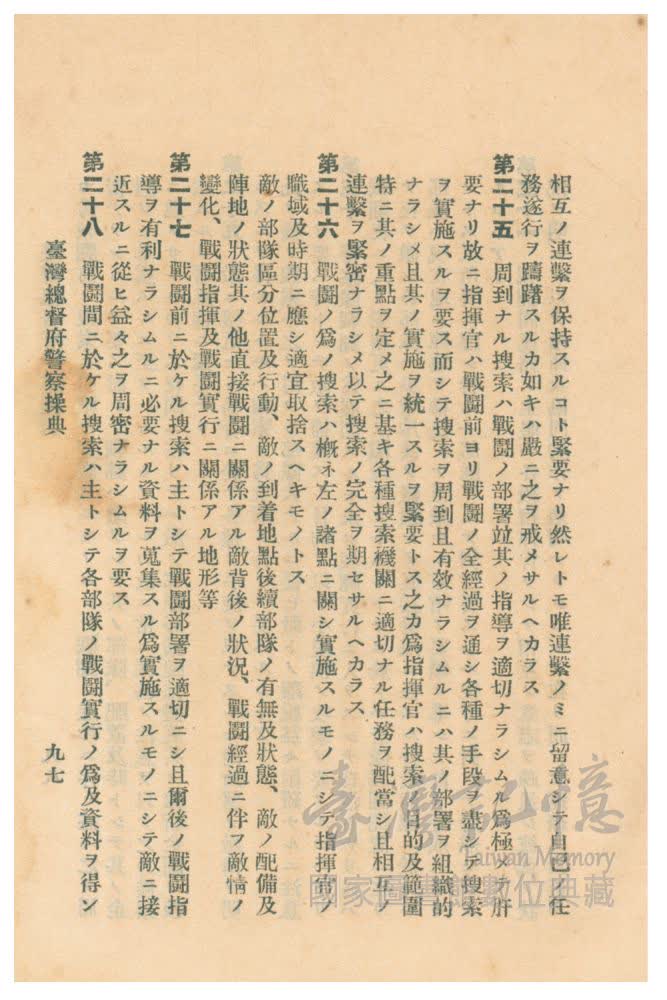 相互ノ連繫ヲ保持スルコト緊要ナリ然レトモ唯連繫ノミニ留意シテ自己ノ任
務遂行ヲ躊躇スルカ如キハ嚴ニ之ヲ戒メサルヘカラス
第二十五　周到ナル搜索ハ戰鬪ノ部署竝其ノ指導ヲ適切ナラシムル爲極メテ肝
要ナリ故ニ指揮官ハ戰鬪前ヨリ戰鬪ノ全經過ヲ通シ各種ノ手段ヲ盡シテ搜索
ヲ實施スルヲ要ス而シテ搜索ヲ周到且有效ナラシムルニハ其ノ部署ヲ組織的
ナラシメ且其ノ實施ヲ統一スルヲ緊要トス之カ爲指揮官ハ搜索ノ目的及範圍
特ニ其ノ重點ヲ定メ之ニ基キ各種搜索機關ニ適切ナル任務ヲ配當シ且相互ノ
連繫ヲ緊密ナラシメ以テ搜索ノ完全ヲ期セサルヘカラス
第二十六　戰鬪ノ爲ノ搜索ハ槪ネ左ノ諸點ニ關シ實施スルモノニシテ指揮官ノ
職域及時期ニ應シ適宜取捨スヘキモノトス
敵ノ部隊區分位置及行動、敵ノ到着地點後續部隊ノ有無及狀態、敵ノ配備及
陣地ノ狀態其ノ他直接戰鬪ニ關係アル敵背後ノ狀況、戰鬪經過ニ伴フ敵情ノ
變化、戰鬪指揮及戰鬪實行ニ關係アル地形等
第二十七　戰鬪前ニ於ケル搜索ハ主トシテ戰鬪部署ヲ適切ニシ且爾後ノ戰鬪指
導ヲ有利ナラシムルニ必要ナル資料ヲ蒐集スル爲實施スルモノニシテ敵ニ接
近スルニ從ヒ益々之ヲ周密ナラシムルヲ要ス
第二十八　戰鬪間ニ於ケル搜索ハ主トシテ各部隊ノ戰鬪實行ノ爲及資料ヲ得ン
臺灣總督府警察操典　九七
臺灣記憶
Taiwan Memory
國家圖書館數位典藏